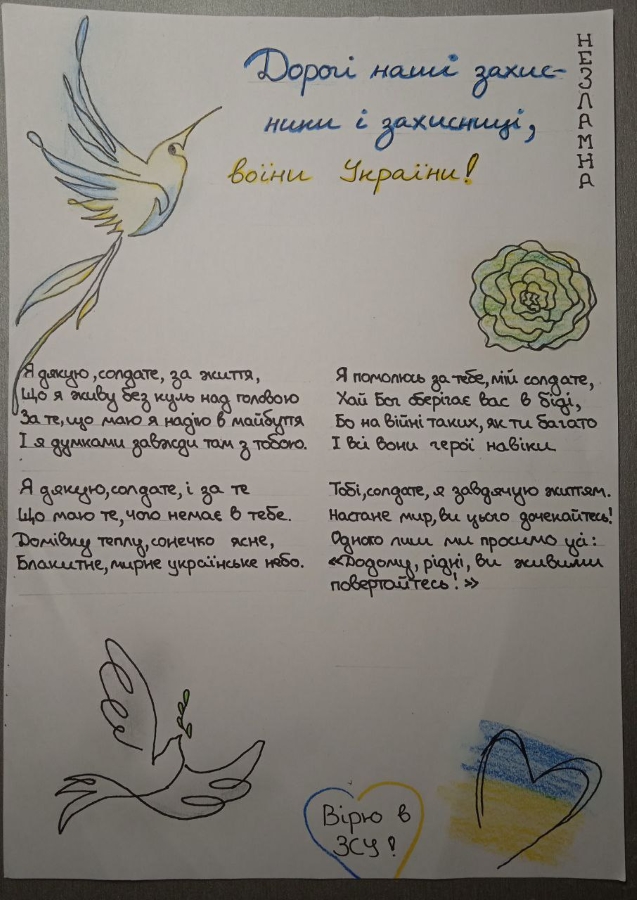 Дорогі наші захис-
ники і захисниці,
воїни України!
НЕЗЛАМНА
Я дякую, солдате, за життя,
Що я живу без куль над головою
За те, що маю я надію в майбуття
І я думками завжди там з тобою.
Я дякую, солдате, і за те
Що маю те, чого немає в тебе.
Домівку теплу, сонечко ясне,
Блакитне, мирне українське небо.
Я помолюсь за тебе, мій солдате,
Хай Бог оберігає вас в біді,
Бо на війні таких, як ти багато
І всі вони герої навіки.
Тобі, солдате, я завдячую життям.
Настане мир, ви цього дочекайтесь!
Одного лиш ми просимо
«Додому, рідні, ви живими
повертайтесь!»
Вірю в
ЗСУ!